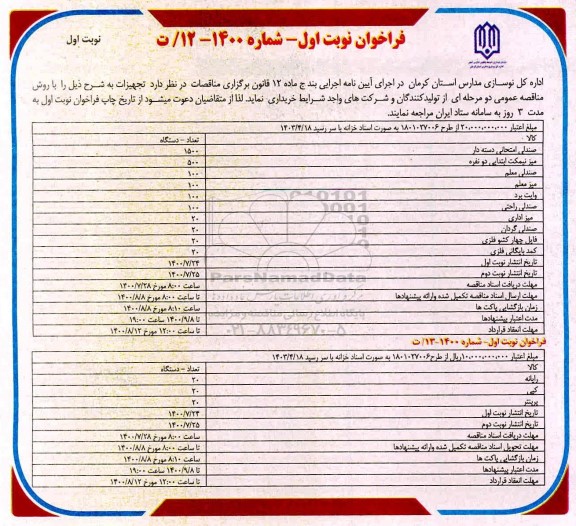 فراخوان نوبت اول- شماره ۱۴۰۰- ۱۲/ ت
نوبت اول
اداره کل نوسازی مدارس استان کرمان در اجرای آیین نامه اجرایی بند ج ماده ۱۲ قانون برگزاری مناقصات در نظر دارد تجهیزات به شرح ذیل را با روش
مناقصه عمومی دو مرحله ای از تولیدکنندگان و شرکت های واجد شرایط خریداری نماید. لذا از متقاضیان دعوت میشود از تاریخ چاپ فراخوان نوبت اول به
مدت ۳ روز به سامانه ستاد ایران مراجعه نمایند.
مبلغ اعتبار ۲۰,۰۰۰,۰۰۰,۰۰۰ از طرح ۱۸۰۱۰۲۷۰۰۶ به صورت اسناد خزانه با سر رسید ۱۴۰۳/۴/۱۸
کالا تعداد - دستگاه
صندلی امتحانی دسته دار ۱۵۰۰
میز نیمکت ابتدایی دو نفره ۵۰۰
صندلی معلم ۱۰۰
میز معلم ۱۰۰
وایت برد ۱۰۰
صندلی راحتی ۱۰۰
میز اداری ۲۰
صندلی گردان ۲۰
فایل چهار کشو فلزی ۲۰
کمد بایگانی فلزی ۲۰
تاریخ انتشار نوبت اول ۱۴۰۰/۷/۲۴
تاریخ انتشار نوبت دوم ۱۴۰۰/۷/۲۵
مهلت دریافت اسناد مناقصه ساعت ۸:۰۰ مورخ ۱۴۰۰/۷/۲۸
مهلت ارسال اسناد مناقصه تکمیل شده وارائه پیشنهادها تا ساعت ۸:۰۰ مورخ ۱۴۰۰/۸/۸
زمان بازگشایی پاکت ها ساعت ۸:۱۰ مورخ ۱۴۰۰/۸/۸
مدت اعتبار پیشنهادها تا ۱۴۰۰/۹/۸ ساعت ۱۹:۰۰
مهلت انعقاد قرارداد تا ساعت ۱۲:۰۰ مورخ ۱۴۰۰/۸/۱۲
ParsNamadData
پایگاه اطلاع رسانی مناقصه و مزایده
۰۲۱-۸۸۳۴۹۶۷۰-۵
فراخوان نوبت اول- شماره ۱۴۰۰-۱۳/ ت
مبلغ اعتبار ۱۰,۰۰۰,۰۰۰,۰۰۰ریال از طرح ۱۸۰۱۰۲۷۰۰۶ به صورت اسناد خزانه با سر رسید ۱۴۰۳/۴/۱۸
کالا تعداد - دستگاه
رایانه ۲۰
کپی ۲۰
پرینتر ۲۰
تاریخ انتشار نوبت اول ۱۴۰۰/۷/۲۴
تاریخ انتشار نوبت دوم ۱۴۰۰/۷/۲۵
مهلت دریافت اسناد مناقصه ساعت ۸:۰۰ مورخ ۱۴۰۰/۷/۲۸
مهلت تحویل اسناد مناقصه تکمیل شده وارائه پیشنهادها تا ساعت ۸:۰۰ مورخ ۱۴۰۰/۸/۸
زمان بازگشایی پاکت ها ساعت ۸:۱۰ مورخ ۱۴۰۰/۸/۸
مدت اعتبار پیشنهادها تا ۱۴۰۰/۹/۸ ساعت ۱۹:۰۰
مهلت انعقاد قرارداد تا ساعت ۱۲:۰۰ مورخ ۱۴۰۰/۸/۱۲